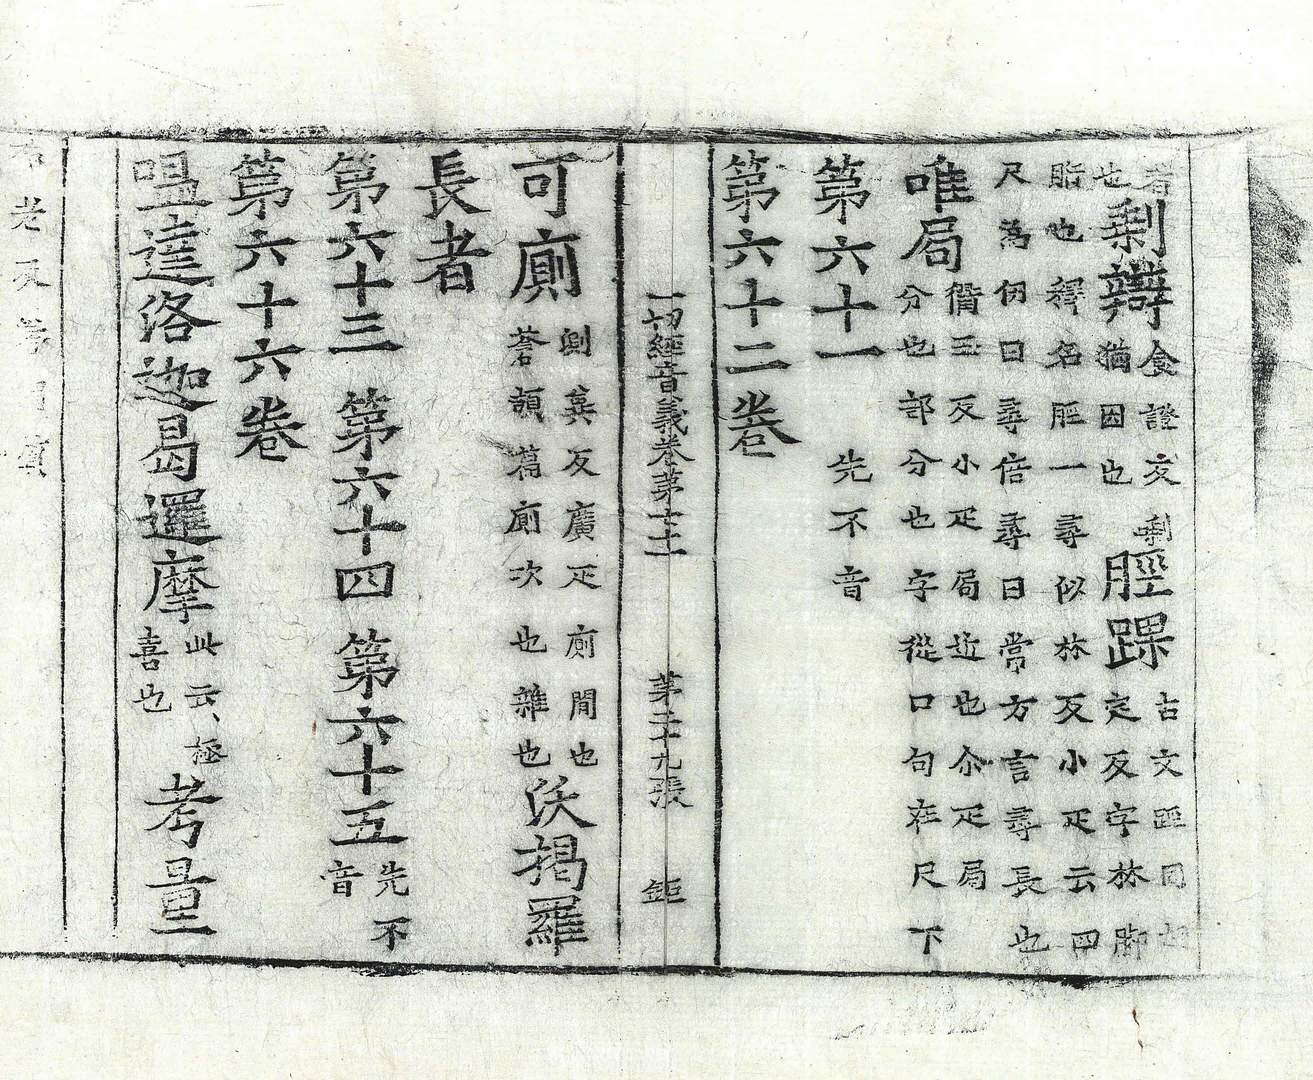 者
也 剩辯 食證反剩
猶因也 脛踝 古文踁同胡
定反字林脚
脂也釋名脛一尋似林反小疋云四
尺為仞曰尋倍尋曰常方言尋長也
唯局 衢玉反小疋局近也尒疋局
分也部分也字從口句在尺下
第六十一 先不音
第六十二卷
一切經音義卷第十二 第二十九張 鉅
可廁 測冀反廣疋廁間也
蒼頡篇廁次也雜也 沃揭羅
長者
第六十三 第六十四 第六十五 先不
音
第六十六卷
嗢達洛迦曷邏摩 此云極
喜也 考量